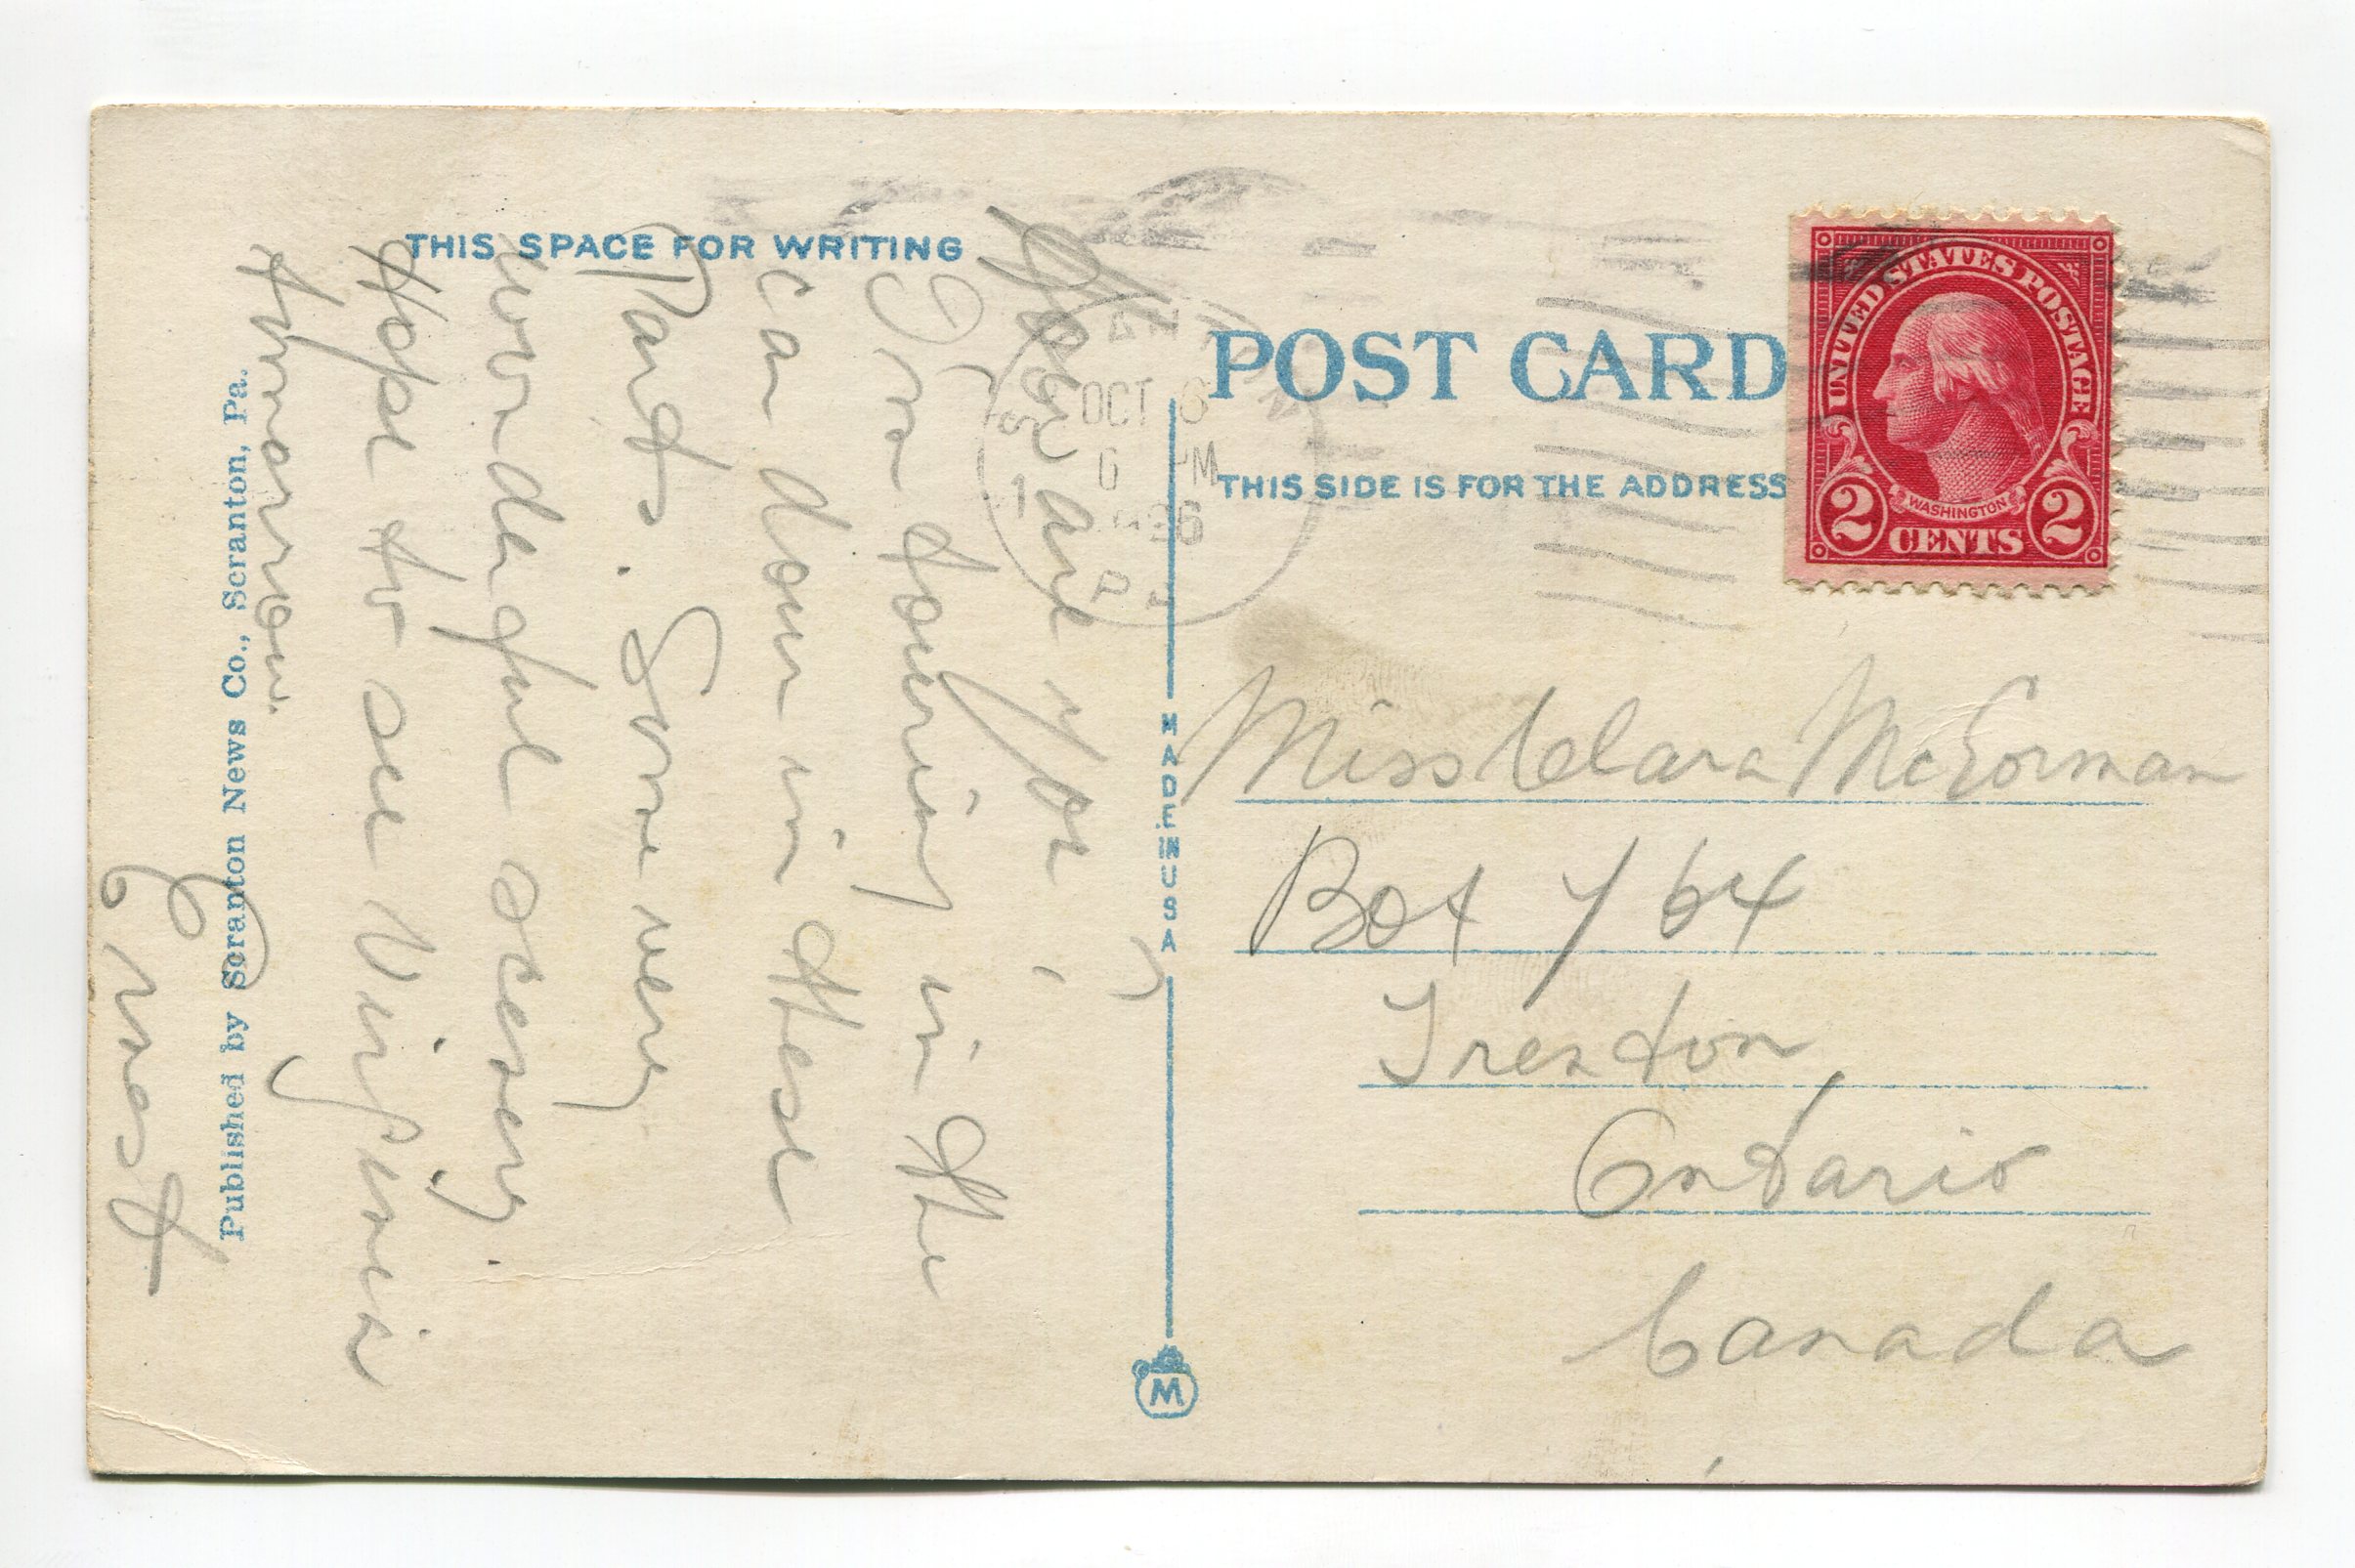 THIS SPACE FOR WRITING
How are you?
I'm touring in the
car down in these
Parts. Some very
wonderful scenery.
Hope to see Virginia
tomorrow.
Ernest
Published by Scranton News Co., Scranton, Pa.
MADE IN USA
M
OCT 6
6 PM
1926
PA
POST CARD
THIS SIDE IS FOR THE ADDRESS
UNITED STATES POSTAGE
WASHINGTON
2 CENTS 2
Miss Clara McGorman
Box 764
Trenton
Ontario
Canada